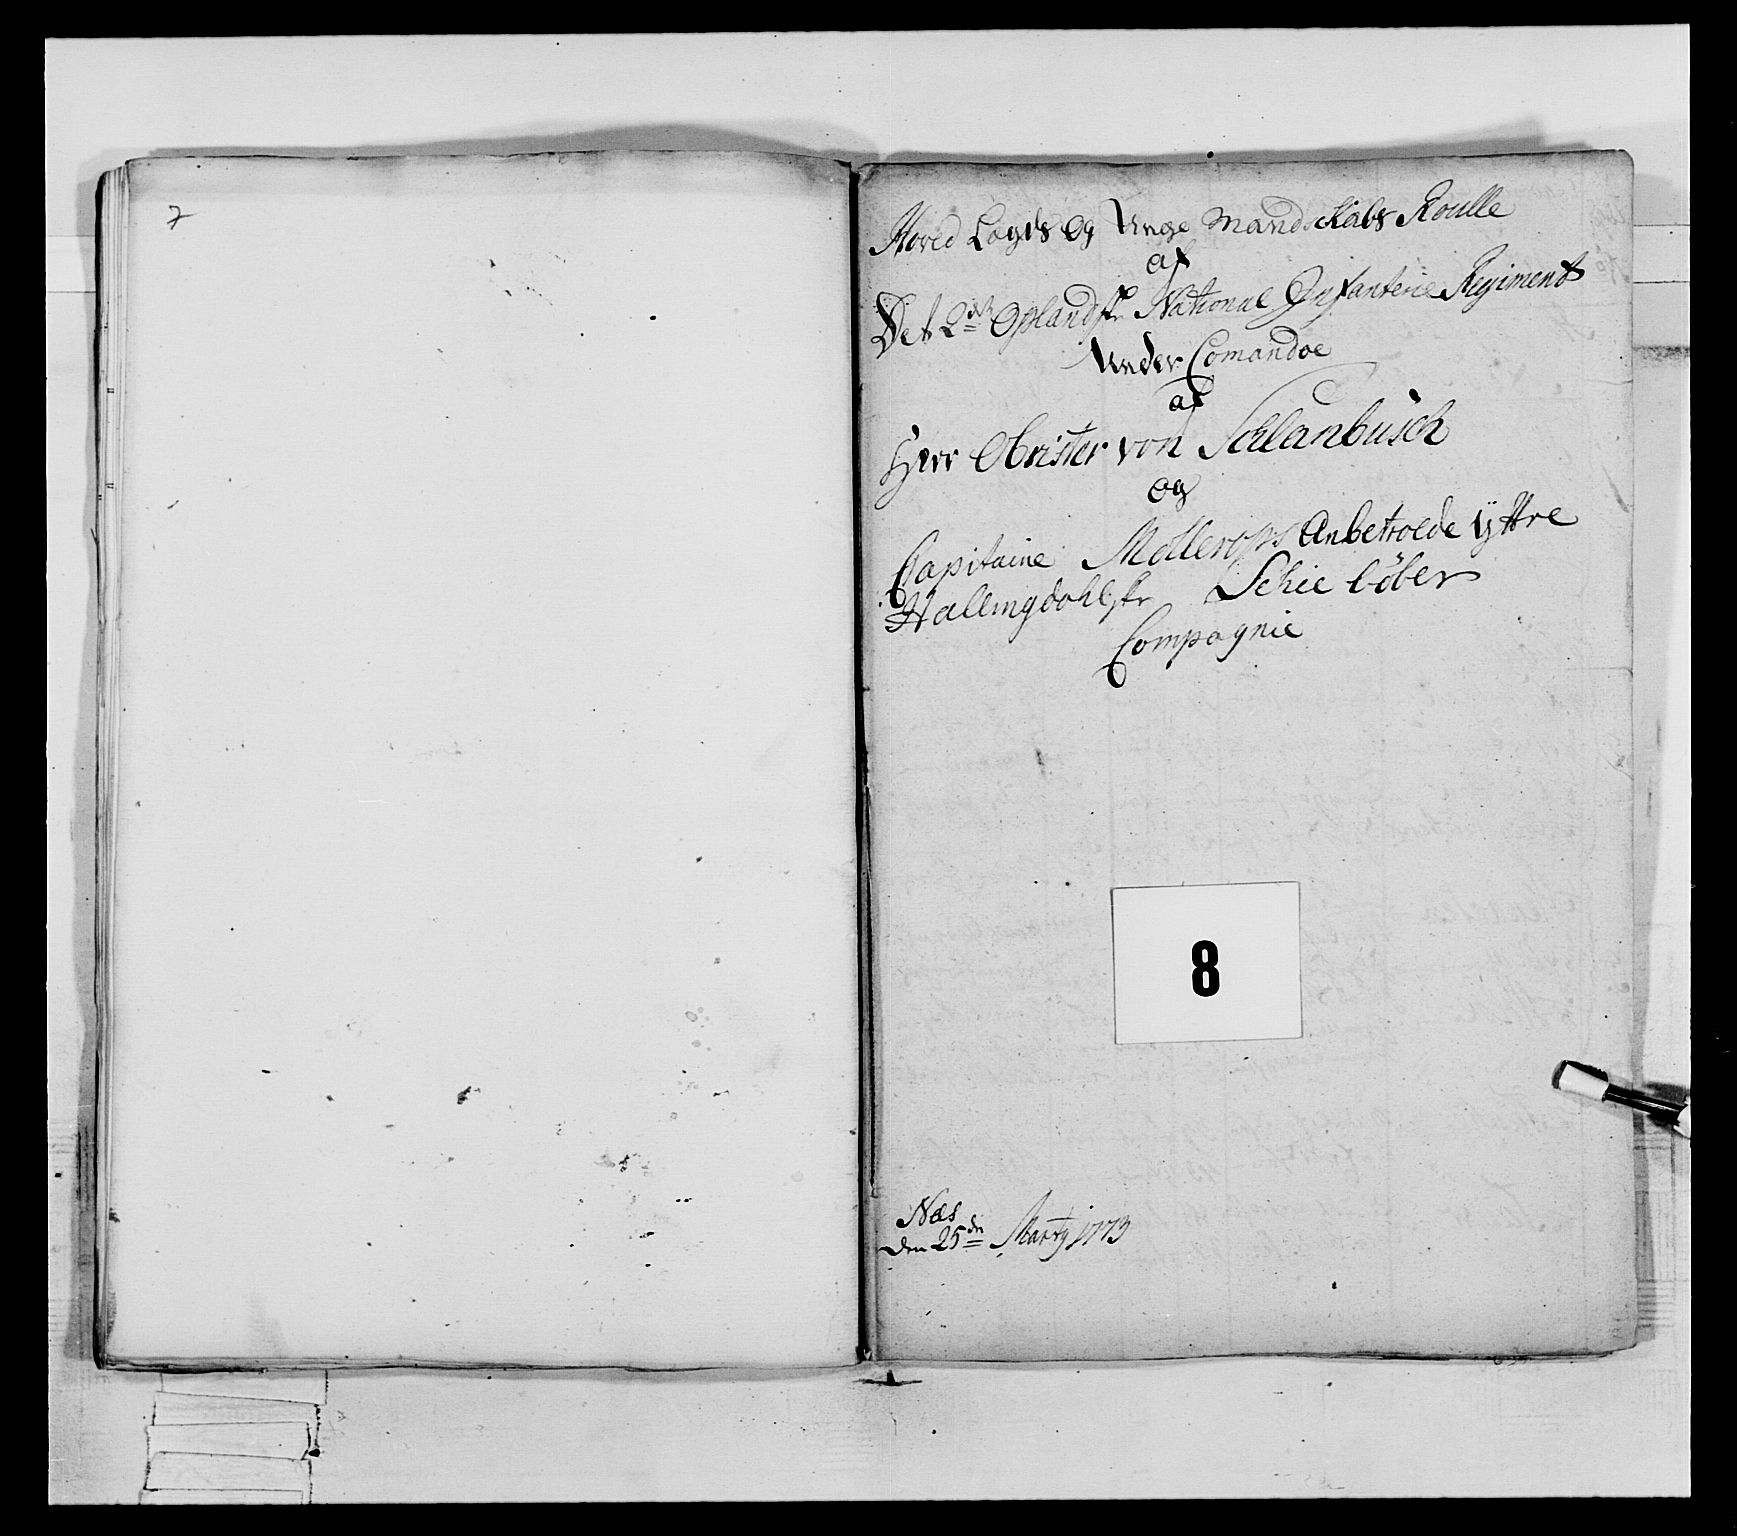 7
Hoved Lægds Og Unge Mandskabs Roulle
af
Det 2de Oplandske National Infanterie Regiment
Under Comandoe
af
Herr Obrister von Schlanbusch
og
Capitaine Møllerops Anbetroede ÿttre
Hallingdahlske Schie löber
Compagnie
8
Næs
den 25de Marty 1773